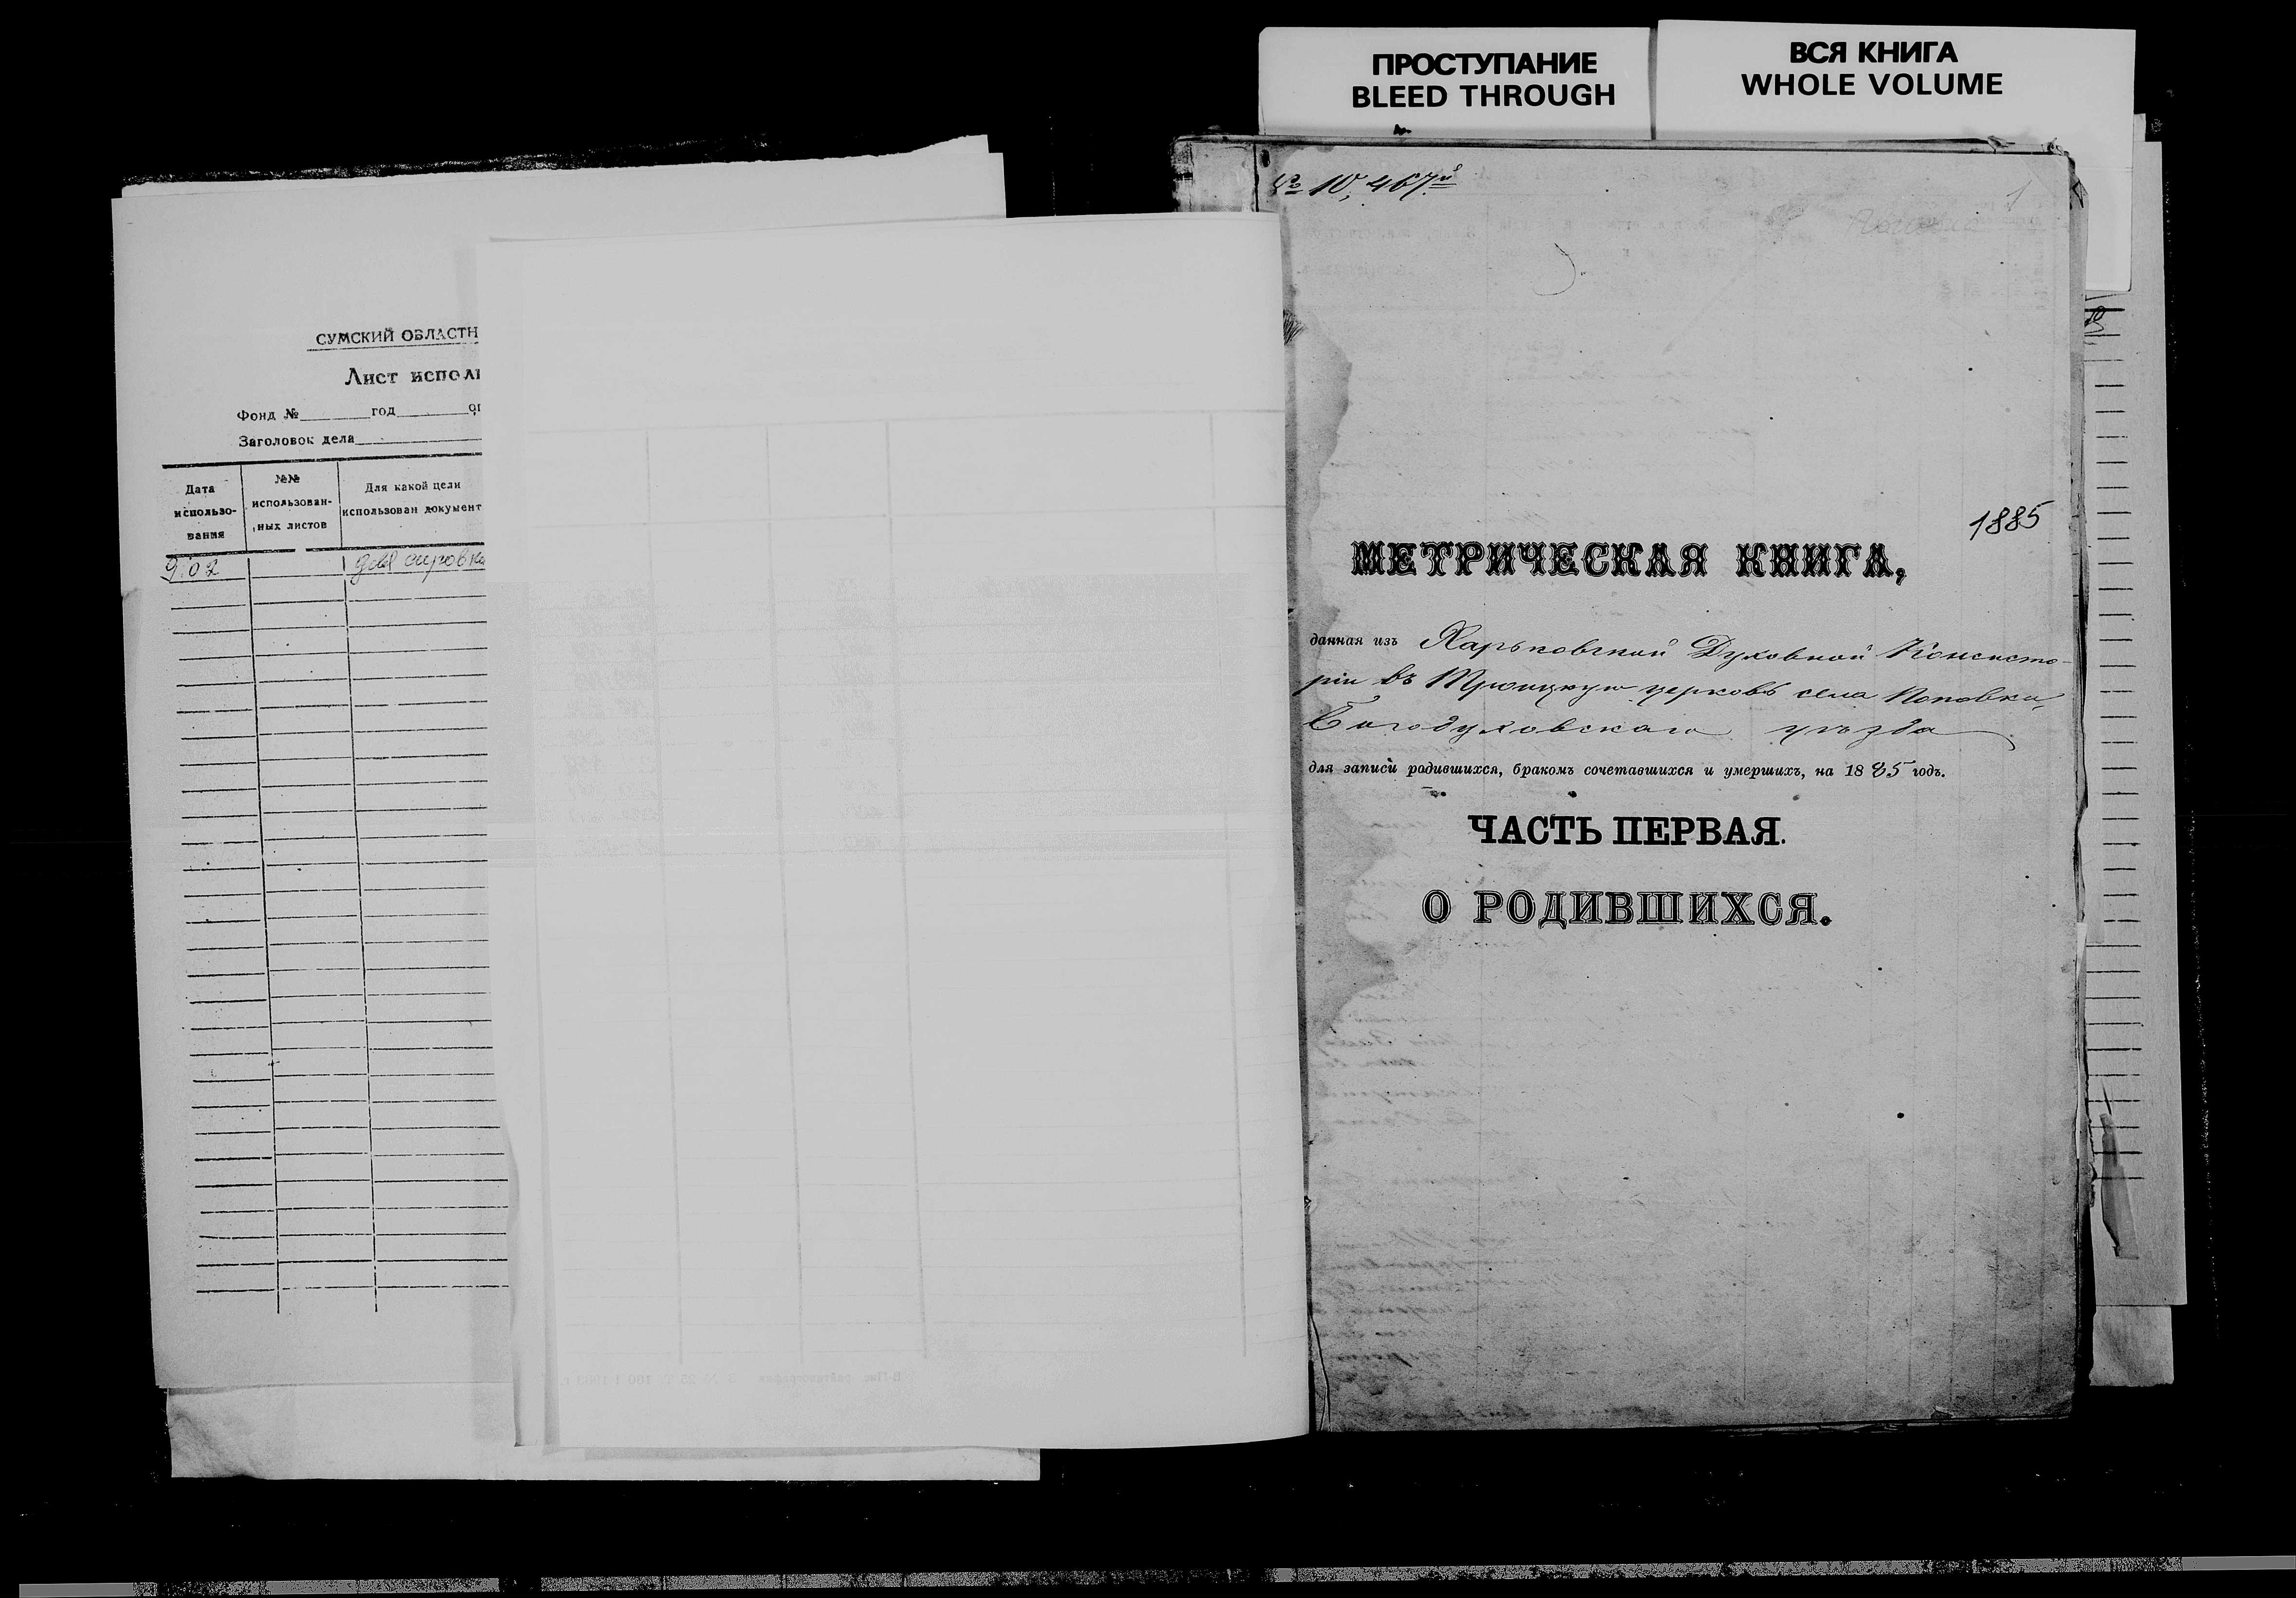 ПРОСТУПАНИЕ
BLEED THROUGH
ВСЯ КНИГА
WHOLE VOLUME
СУМСКИЙ ОБЛАСТН
Лист исполь
Фонд № год оп
Заголовок дела
Дата использования
№№ использован-ных листов
Для какой цели использован документ
9.02
№ 10,467й
1
1885
МЕТРИЧЕСКАЯ КНИГА,
данная изъ Харьковской Духовной Консисто-
ріи въ Троицкую церковь села Поповки,
Богодуховскаго уѣзда
для записи родившихся, бракомъ сочетавшихся и умершихъ, на 1885 годъ.
ЧАСТЬ ПЕРВАЯ.
О РОДИВШИХСЯ.